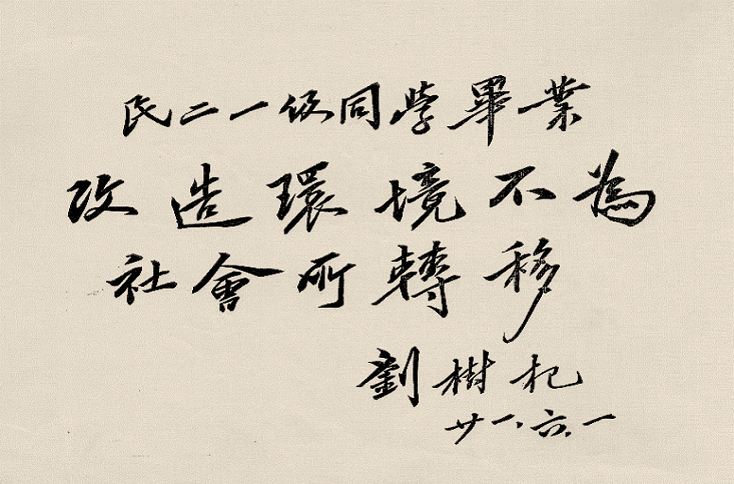 民二一级同学畢業
改造環境不為
社會所轉移
劉樹杞
廿一、六、一